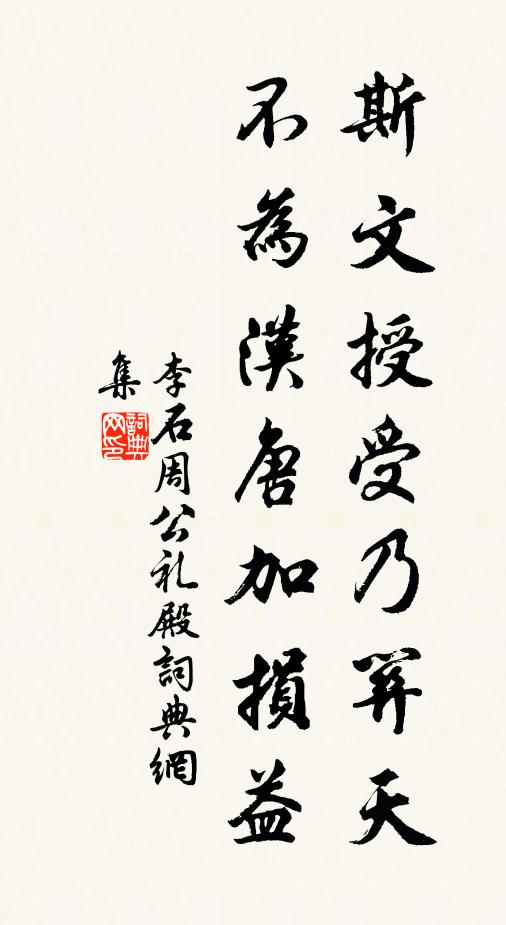 斯文授受乃關天
不為漢唐加損益
李石周公礼殿詞典網
集
詞典
网印